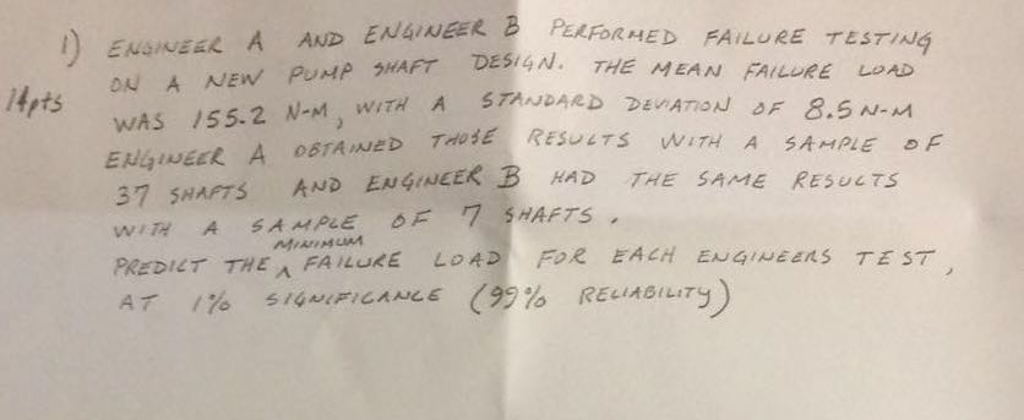 1) ENGINEER A AND ENGINEER B PERFORMED FAILURE TESTING
ON A NEW PUMP SHAFT DESIGN. THE MEAN FAILURE LOAD
14pts
WAS 155.2 N-M, WITH A STANDARD DEVIATION OF 8.5 N-M
ENGINEER A OBTAINED THOSE RESULTS WITH A SAMPLE OF
37 SHAFTS AND ENGINEER B HAD THE SAME RESULTS
WITH A SAMPLE OF 7 SHAFTS.
PREDICT THE ^ MINIMUM FAILURE LOAD FOR EACH ENGINEERS TEST,
AT 1% SIGNIFICANCE (99% RELIABILITY)